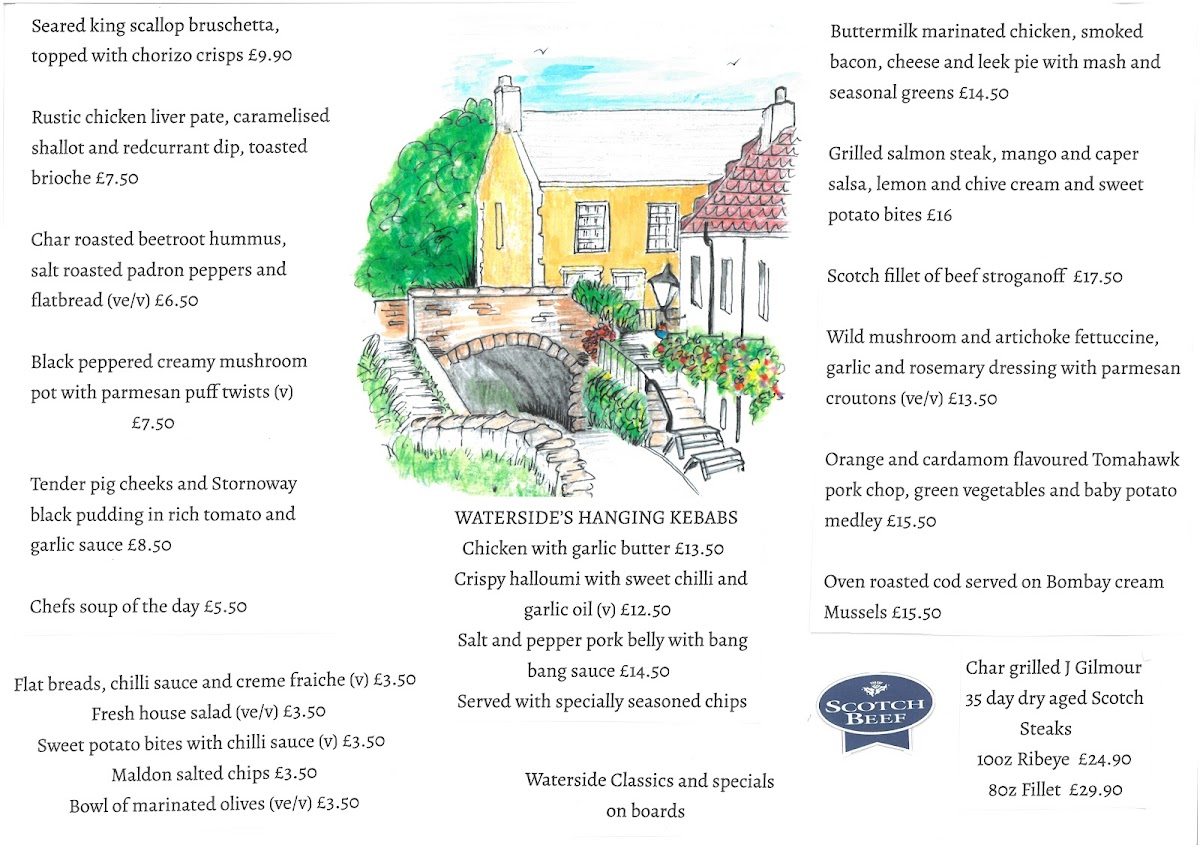 Seared king scallop bruschetta,
topped with chorizo crisps £9.90
Rustic chicken liver pate, caramelised
shallot and redcurrant dip, toasted
brioche £7.50
Char roasted beetroot hummus,
salt roasted padron peppers and
flatbread (ve/v) £6.50
Black peppered creamy mushroom
pot with parmesan puff twists (v)
£7.50
Tender pig cheeks and Stornoway
black pudding in rich tomato and
garlic sauce £8.50
Chefs soup of the day £5.50
Flat breads, chilli sauce and creme fraiche (v) £3.50
Fresh house salad (ve/v) £3.50
Sweet potato bites with chilli sauce (v) £3.50
Maldon salted chips £3.50
Bowl of marinated olives (ve/v) £3.50
WATERSIDE'S HANGING KEBABS
Chicken with garlic butter £13.50
Crispy halloumi with sweet chilli and
garlic oil (v) £12.50
Salt and pepper pork belly with bang
bang sauce £14.50
Served with specially seasoned chips
Waterside Classics and specials
on boards
Buttermilk marinated chicken, smoked
bacon, cheese and leek pie with mash and
seasonal greens £14.50
Grilled salmon steak, mango and caper
salsa, lemon and chive cream and sweet
potato bites £16
Scotch fillet of beef stroganoff £17.50
Wild mushroom and artichoke fettuccine,
garlic and rosemary dressing with parmesan
croutons (ve/v) £13.50
Orange and cardamom flavoured Tomahawk
pork chop, green vegetables and baby potato
medley £15.50
Oven roasted cod served on Bombay cream
Mussels £15.50
SCOTCH
BEEF
Char grilled J Gilmour
35 day dry aged Scotch
Steaks
10oz Ribeye £24.90
8oz Fillet £29.90